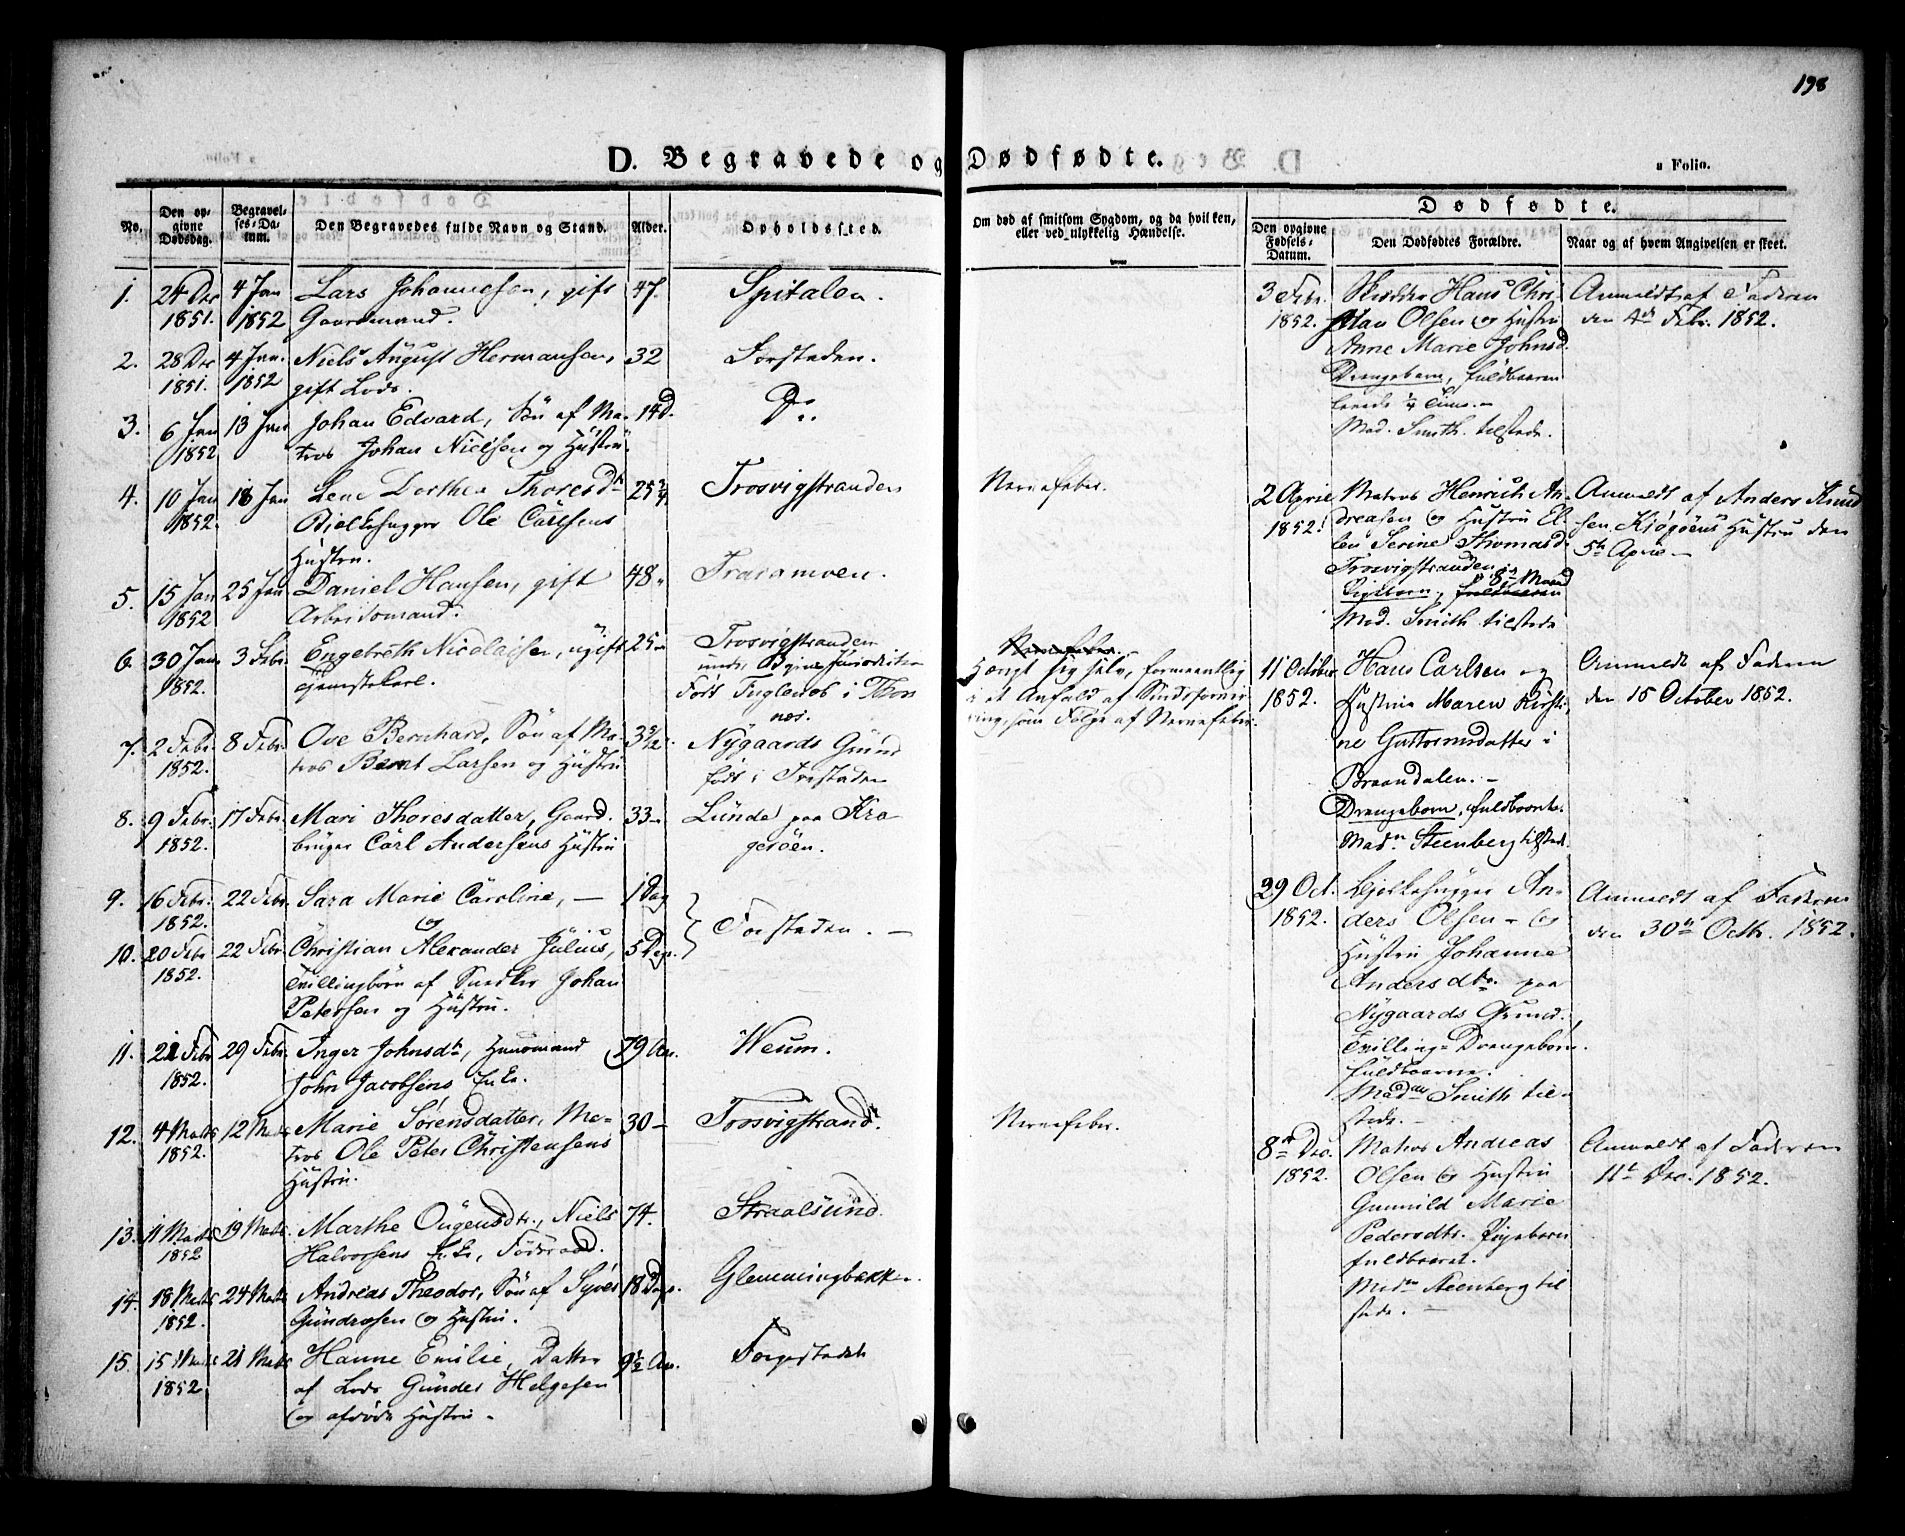 198
D. Begravede og Dødfødte.
a Folio.
No.
Den opgivne Dødsdag.
Begravelses-Datum.
Den Begravedes fulde Navn og Stand.
Alder.
Opholdssted.
Om død af smitsom Sygdom, og da hvilken, eller ved ulykkelig Hændelse.
Dødfødte.
Den opgivne Fødsels-Datum.
Den Dødfødtes Forældre.
Naar og af hvem Angivelsen er skeet.
1. 24 Dec 1851. 4 Jan 1852 Lars Johannesen, gift 47. Spitalen.
Gaardmand.
2. 28 Dec 1851. 4 Jan. 1852 Niels August Hermansen, 32 Forstaden.
gift Lods.
3. 6 Jan 1852 13 Jan Johan Edvard, Søn af Ma- 14 D. Do.
tros Johan Nielsen og Hustru.
4. 10 Jan 1852. 18 Jan Lene Dorthea Thoresdtr 25 3/4 Trosvigstranden Nervefeber.
Bjelkehugger Ole Carlsens
Hustru.
5. 15 Jan 1852 25 Jan Daniel Hansen, gift 48 Traramoen.
Arbeidsmand.
6. 30 Jan 1852. 3 Febr. Engebreth Nicolaisen, ugift 25 Trosvigstranden
Tjenestekarl.
under Byens Jurisdiction
Født Fuglenes i
Nervefeber.
Hængt sig selv, formeentlig
i et Anfald af Sindsforvir-
ring, som Følge af Nervefeber.
7. 2 Febr. 1852. 8 Febr. Ove Bernhard, Søn af Ma- 3 9/12 Nygaards Grund
tros Bernt Larsen og Hustru
født i Forstaden
8. 9 Febr. 1852. 17 Febr. Mari Thoresdatter, Gaard- 33 Lunde paa Kra-
bruger Carl Andersens Hustru
gerøen.
9. 16 Febr. 1852. 22 Febr. Sara Marie Caroline, — 1 Dag
og
Forstaden. —
10. 20 Febr 1852. 22 Febr. Christian Alexander Julius, 5 Dage
Tvillingbørn af Snedker Johan
Petersen og Hustru.
11. 21 Febr 1852. 29 Febr. Inger Johnsdtr, Huusmand 79 Aar. Weum.
John Jacobsens Enke.
12. 4 Marts 1852. 12 Marts Marie Sørensdatter, Ma- 30 Trosvigstrand. Nervefeber.
tros Ole Peter Christensens
Hustru.
13. 11 Marts 1852 19 Marts Marthe Ougensdtr., Niels 74. Straalsund.
Halvorsens Enke, Føderaad.
14. 18 Marts 1852. 24 Marts Andreas Theodor, Søn af Syver 18 Dage. Glemmingbakken.
Gundersen og Hustru.
15. 15 Marts 1852 21 Marts Hanne Emilie, Datter 9 1/2 Aar. Torpstedet
af Lods Gunder Helgesen
og afdøde Hustru.
3 Febr. 1852.
Skrædder Hans Chri-
stian Olsen og Hustru
Anne Marie Johnsd.
Drengebarn, fuldbaaren
levede 1/4 Time. —
Mad. Smith tilstede.
Anmeldt af Faderen
den 4de Febr. 1852.
2 April 1852.
Matros Henrich An-
dreasen og Hustru El-
len Serine Thomasd.
Trosvigstranden
Pigebarn, fuldbaaren
Mad. Smith tilstede
Anmeldt af Anders Knud-
sen Kjøgøens Hustru den
5te April —
11 October 1852.
Hans Carlsen og
Hustrue Maren Kirsti-
ne Guttormsdatter i
Braandalen. —
Drengebarn, fuldbaaret.
Madm Steenberg tilstede.
Anmeldt af Faderen
den 15 October 1852.
29 Oct. 1852.
Bjelkehugger An-
ders Olsen og
Hustru Johanne
Andersdtr. paa
Nygaards Grund.
Tvilling-Drengebørn
fuldbaarne.
Madam Smith til-
stede. —
Anmeldt af Faderen
den 30te Octbr. 1852.
8de Dec. 1852.
Matros Andreas
Olsen og Hustru
Gunnild Marie
Pedersdtr. Pigebarn
fuldbaaret.
Madm Steenberg til
stede. —
Anmeldt af Faderen
11te Dec. 1852.